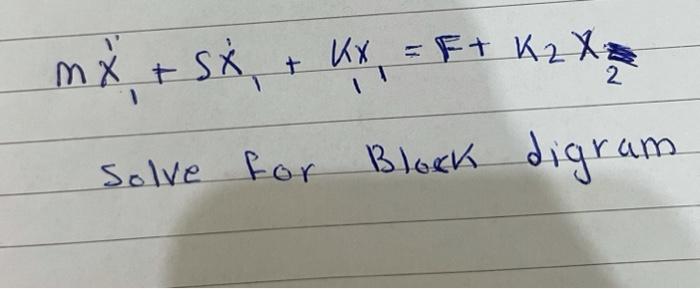 mẍ₁ + sẋ₁ + K₁x₁ = F + K₂X₂
Solve for Block digram